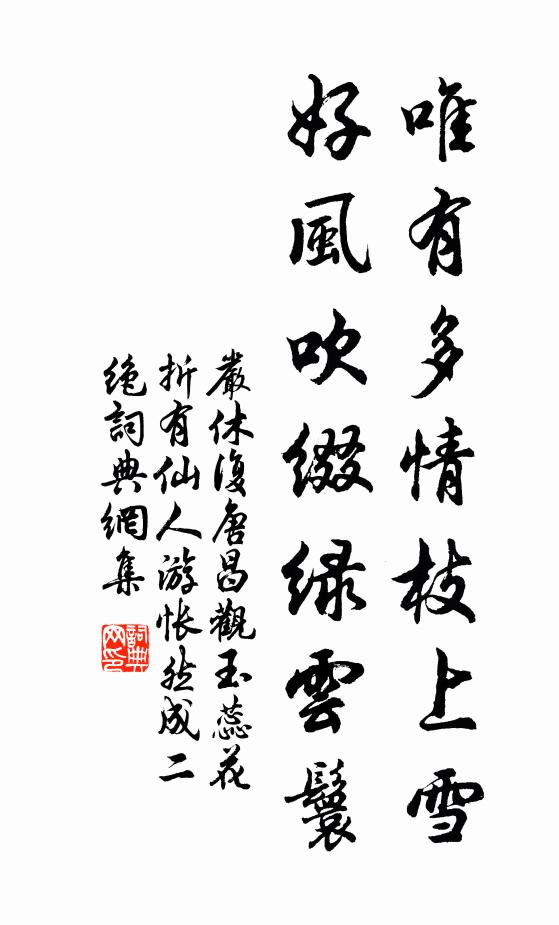 唯有多情枝上雪
好風吹綴緑雲鬟
嚴休復唐昌觀玉蕊花
折有仙人游悵然成二
絶詞典網集
詞典网印